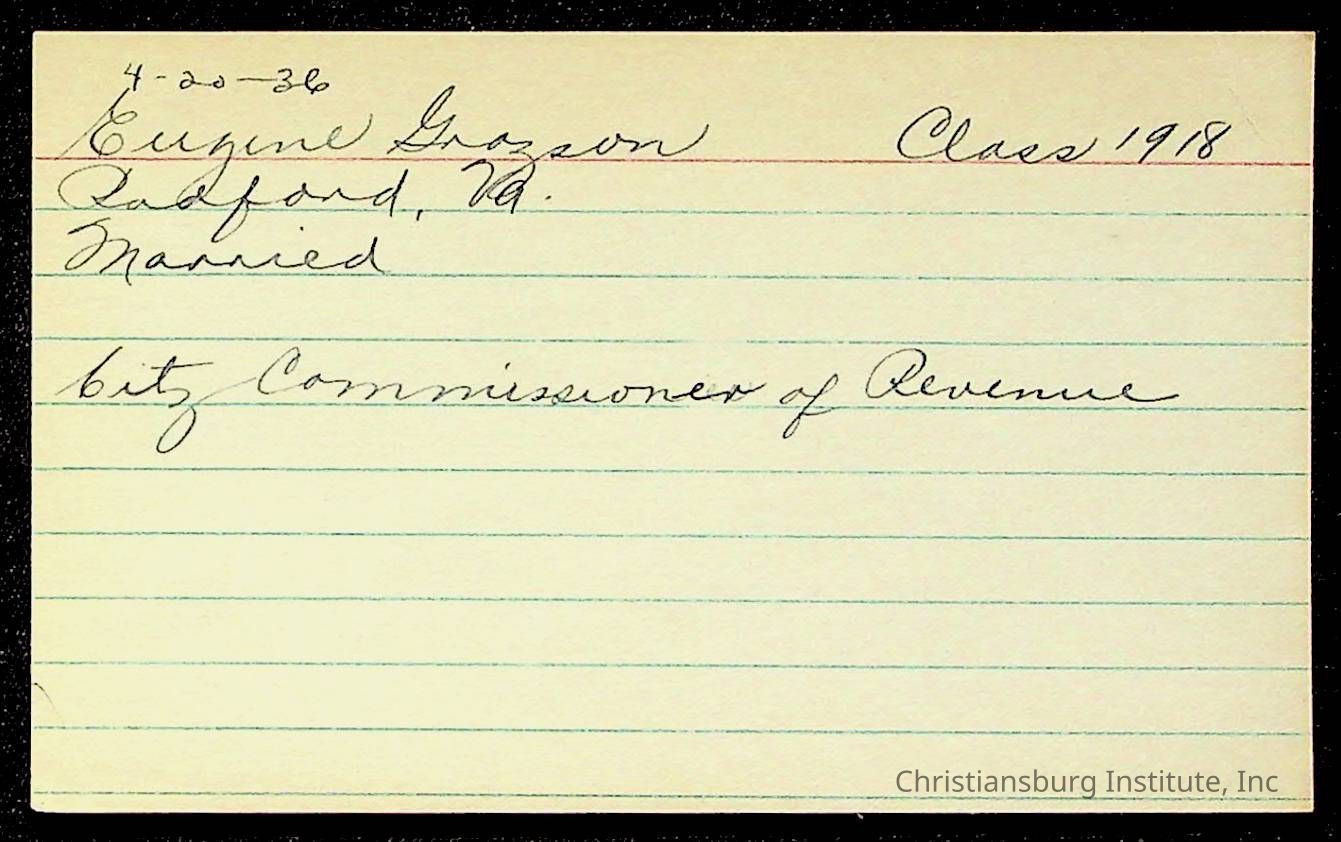 4-20-36
Eugene Grayson Class 1918
Radford, Va.
Married
City Commissioner of Revenue
Christiansburg Institute, Inc